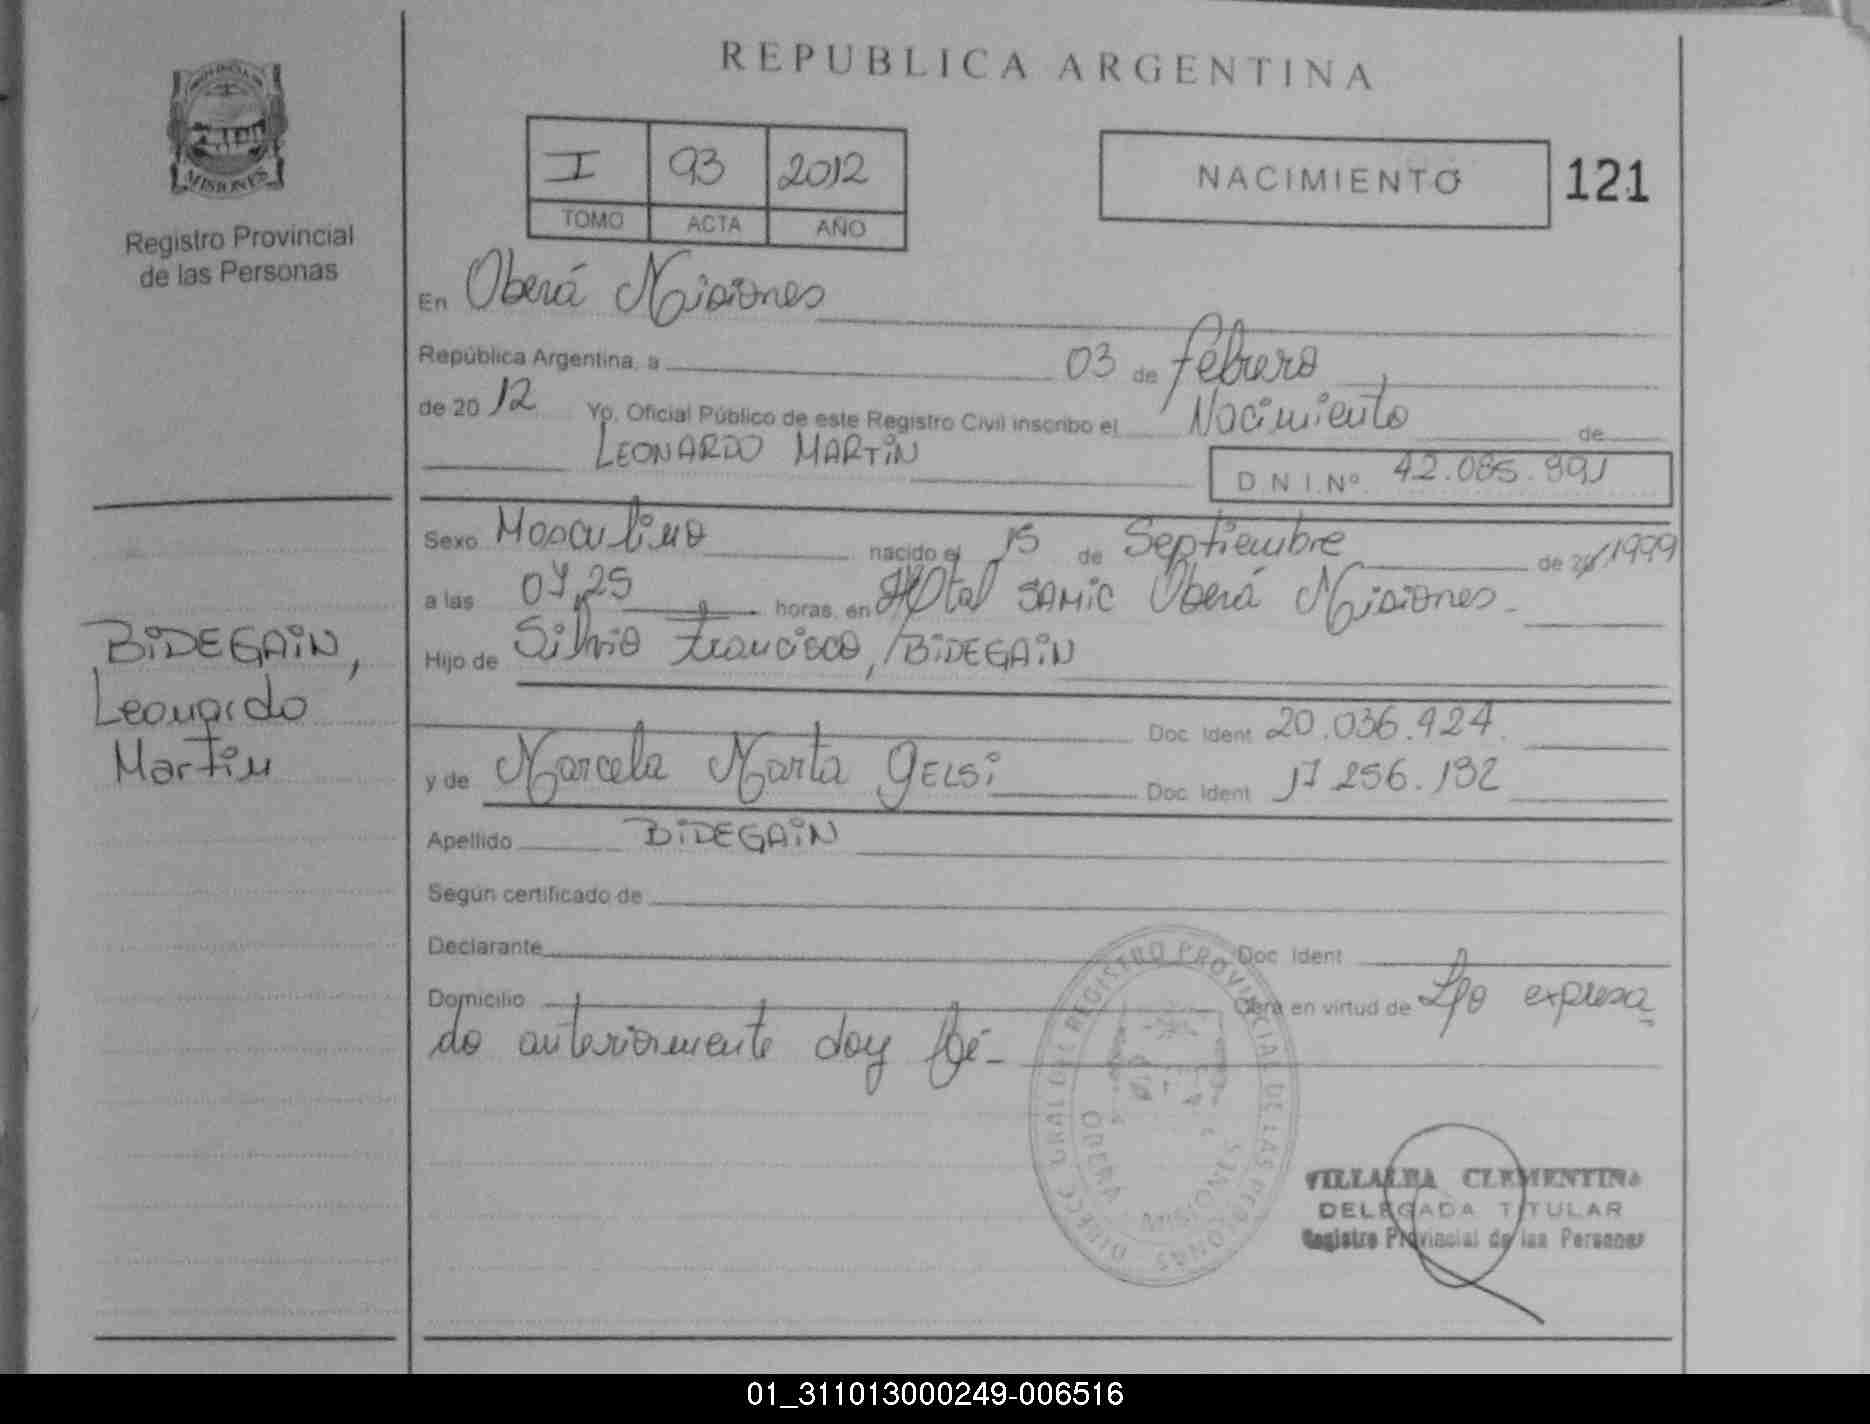 REPUBLICA ARGENTINA
MISIONES
Registro Provincial
de las Personas
I 93 2012
TOMO ACTA AÑO
NACIMIENTO 121
En Oberá Misiones
República Argentina, a 03 de febrero
de 2012 Yo, Oficial Público de este Registro Civil inscribo el Nacimiento de
LEONARDO MARTIN D N I. Nº 42.085.991
Sexo Masculino nacido el 15 de Septiembre de 1999
a las horas, en SAMIC Oberá Misiones
Hijo de Silvio Francisco, BIDEGAIN
Doc. Ident 20.036.424
y de Marcela Marta GELSi Doc. Ident 17.256.132
Apellido BIDEGAIN
Según certificado de
Declarante Doc. Ident
Domicilio Obra en virtud de expresa
do anteriormente doy fé
BIDEGAIN,
Leonardo
Martin
REGISTRO PROVINCIAL DE LAS PERSONAS
OBERA MISIONES
VILLALBA CLEMENTINA
DELEGADA TITULAR
Registro Provincial de las Personas
01_311013000249-006516